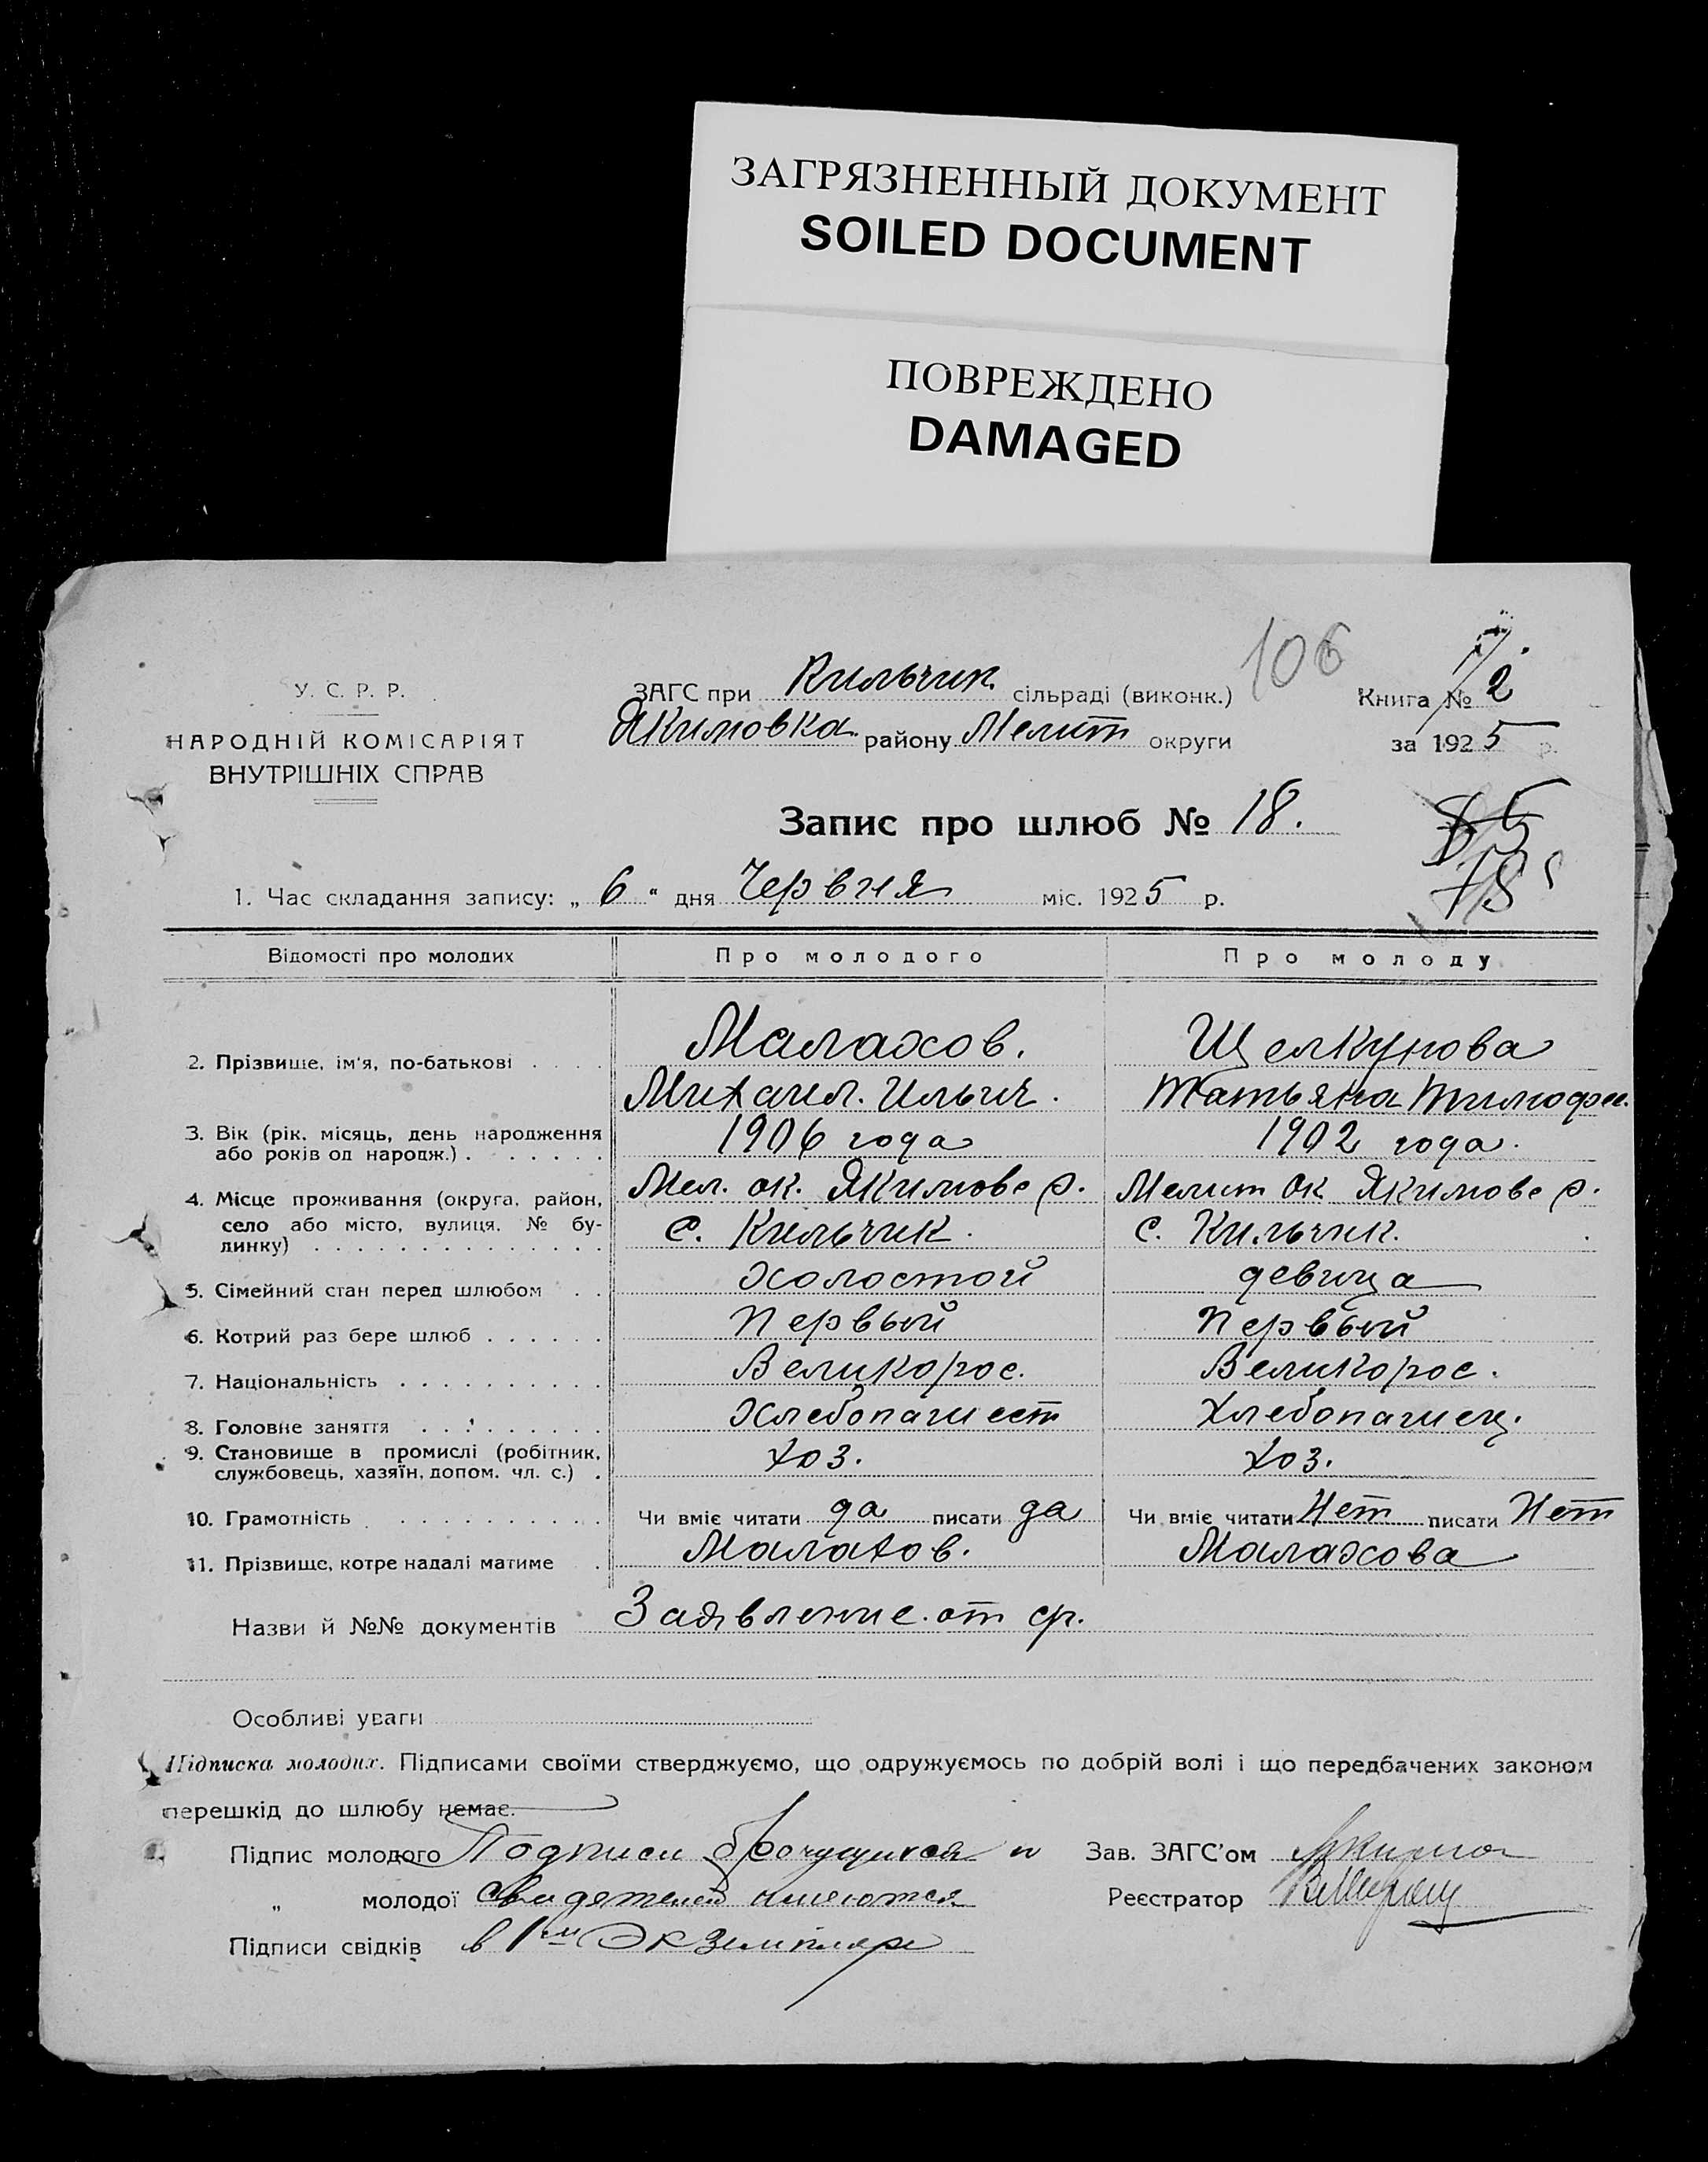 ЗАГРЯЗНЕННЫЙ ДОКУМЕНТ
SOILED DOCUMENT
ПОВРЕЖДЕНО
DAMAGED
106
У. С. Р. Р.
НАРОДНІЙ КОМІСАРІЯТ
ВНУТРІШНІХ СПРАВ
ЗАГС при Кильчик. сільраді (виконк.)
Якимовка району Мелит округи
Книга № 2
за 1925 р.
Запис про шлюб № 18.
1. Час складання запису: „ 6 “ дня Червня міс. 1925 р.
Відомості про молодих Про молодого Про молоду
2. Прізвище, ім'я, по-батькові . . . . Малахов. Щелкунова
Михаил. Ильич. Татьяна Тимофее.
3. Вік (рік, місяць, день народження 1906 года 1902 года.
або років од народж.) . . . . . .
4. Місце проживання (округа, район, Мел. ок. Якимове р. Мелит ок Якимове р.
село або місто, вулиця, № бу- с. Кильчик. с. Кильчик.
динку) . . . . . . . . . . . . . .
5. Сімейний стан перед шлюбом . . холостой девица
6. Котрий раз бере шлюб . . . . . . Первый Первый
7. Національність . . . . . . . . . . Великорос. Великорос.
8. Головне заняття . . . . . . . . . Хлебопашест Хлебопашец.
9. Становище в промислі (робітник, хоз. хоз.
службовець, хазяїн, допом. чл. с.) .
10. Грамотність . . . . . . . . . . Чи вміє читати да писати да Чи вміє читати Нет писати Нет
11. Прізвище, котре надалі матиме . Малахов. Малахова
Назви й №№ документів Заявление. от ср.
Особливі уваги
Підписка молодих. Підписами своїми стверджуємо, що одружуємось по добрій волі і що передбачених законом
перешкід до шлюбу немає.
Підпис молодого Подписи брачущихся и Зав. ЗАГС'ом
„ молодої свидетелей имеются Реєстратор
Підписи свідків в 1ᵐ Экземпляре